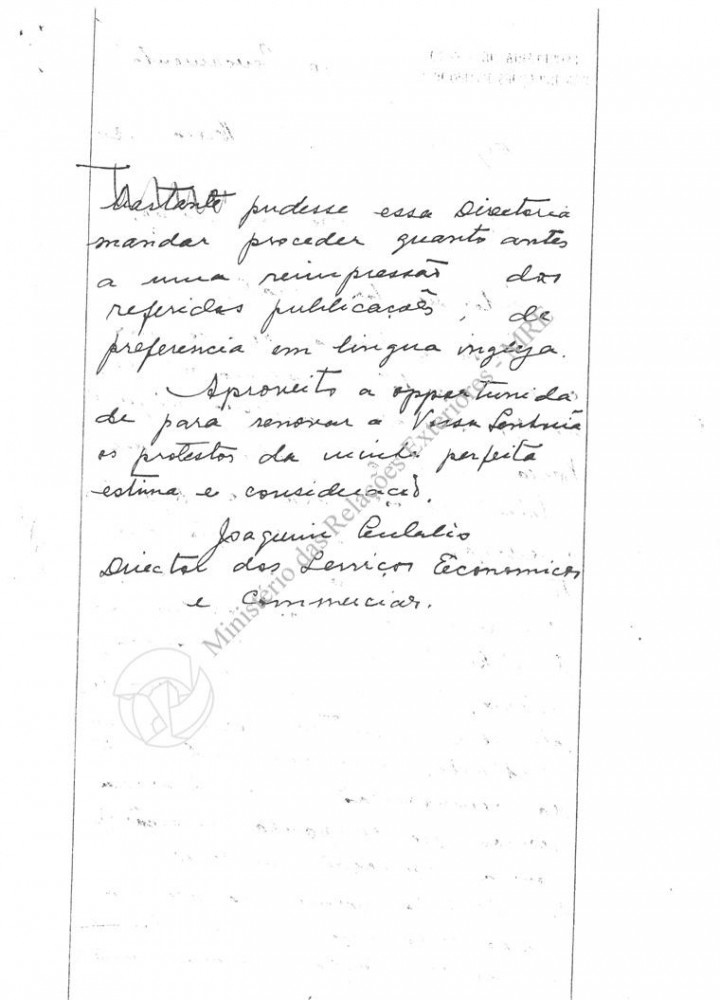 pudesse essa Directoria
mandar proceder quanto antes
a uma reimpressão das
referidas publicações, de
preferencia em lingua ingleza.
Aproveito a opportunida
de para renovar a Vossa Senhoria
os protestos da minha perfeita
estima e consideração.
Joaquim Eulalio
Director dos Serviços Economicos
e Commerciaes.
Ministério das Relações Exteriores - MRE